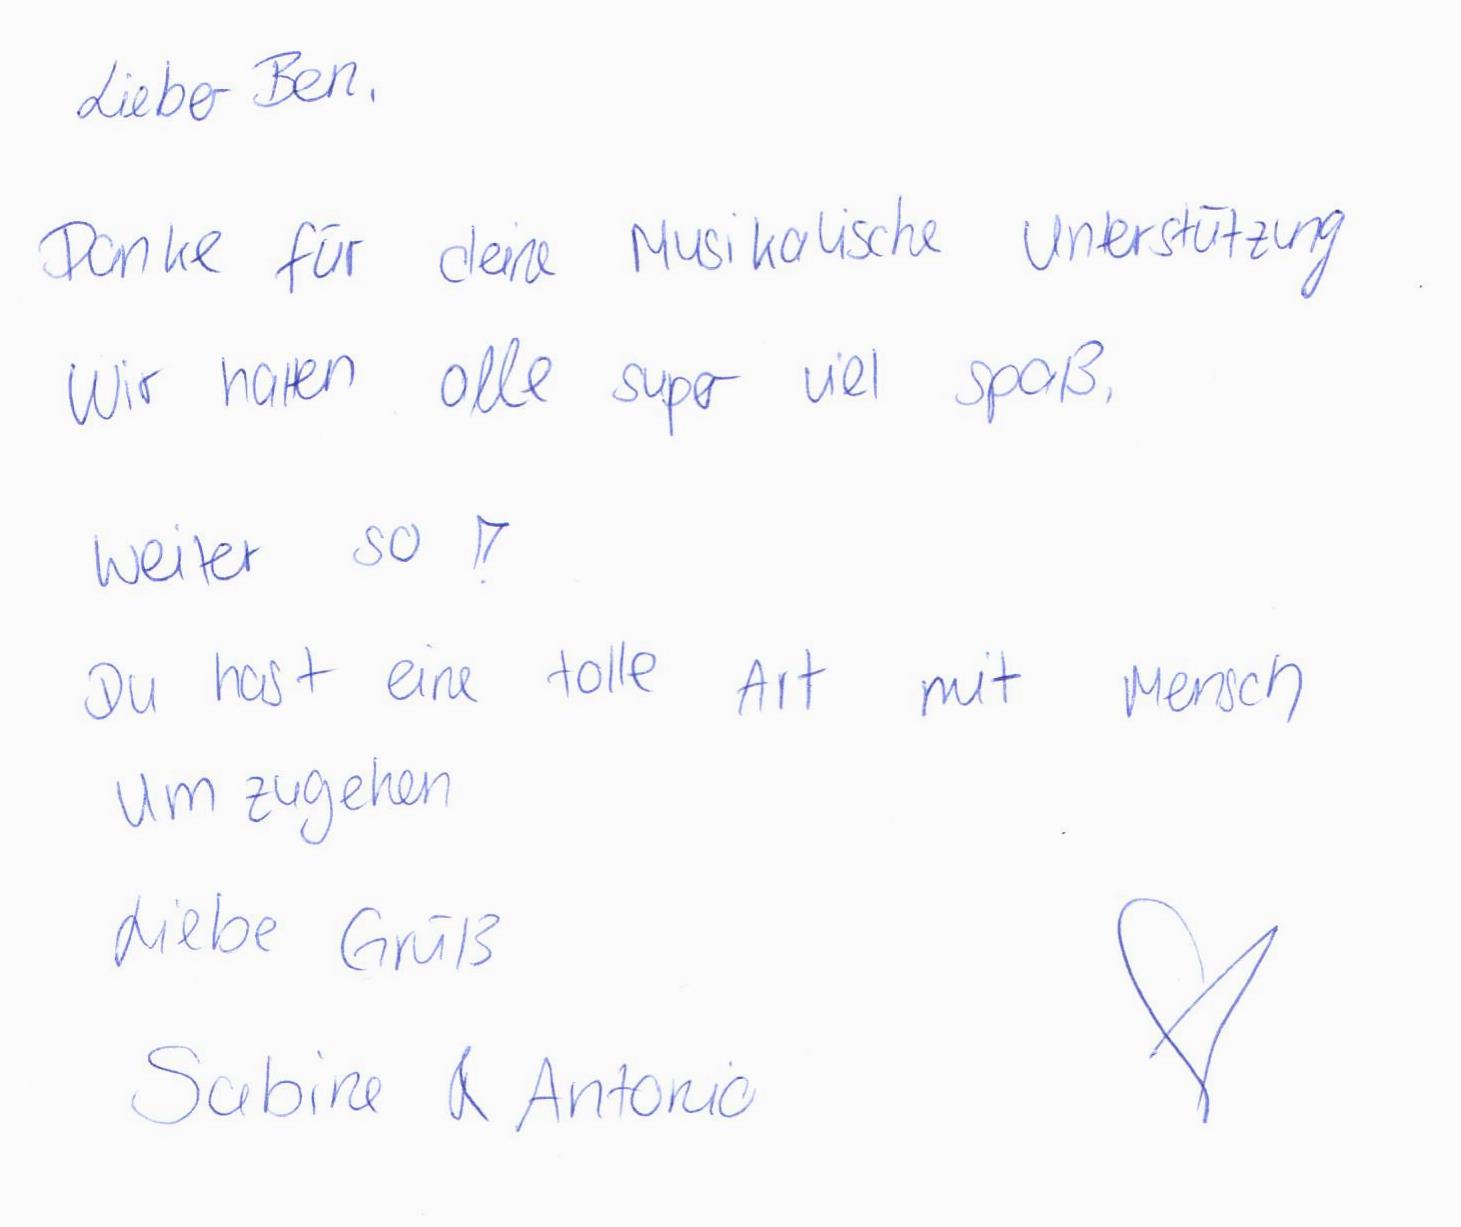 Lieber Ben,
Danke für deine Musikalische Unterstützung
Wir hatten alle super viel spaß.
Weiter so!
Du hast eine tolle Art mit Mensch
umzugehen
Liebe Grüß
Sabine & Antonio